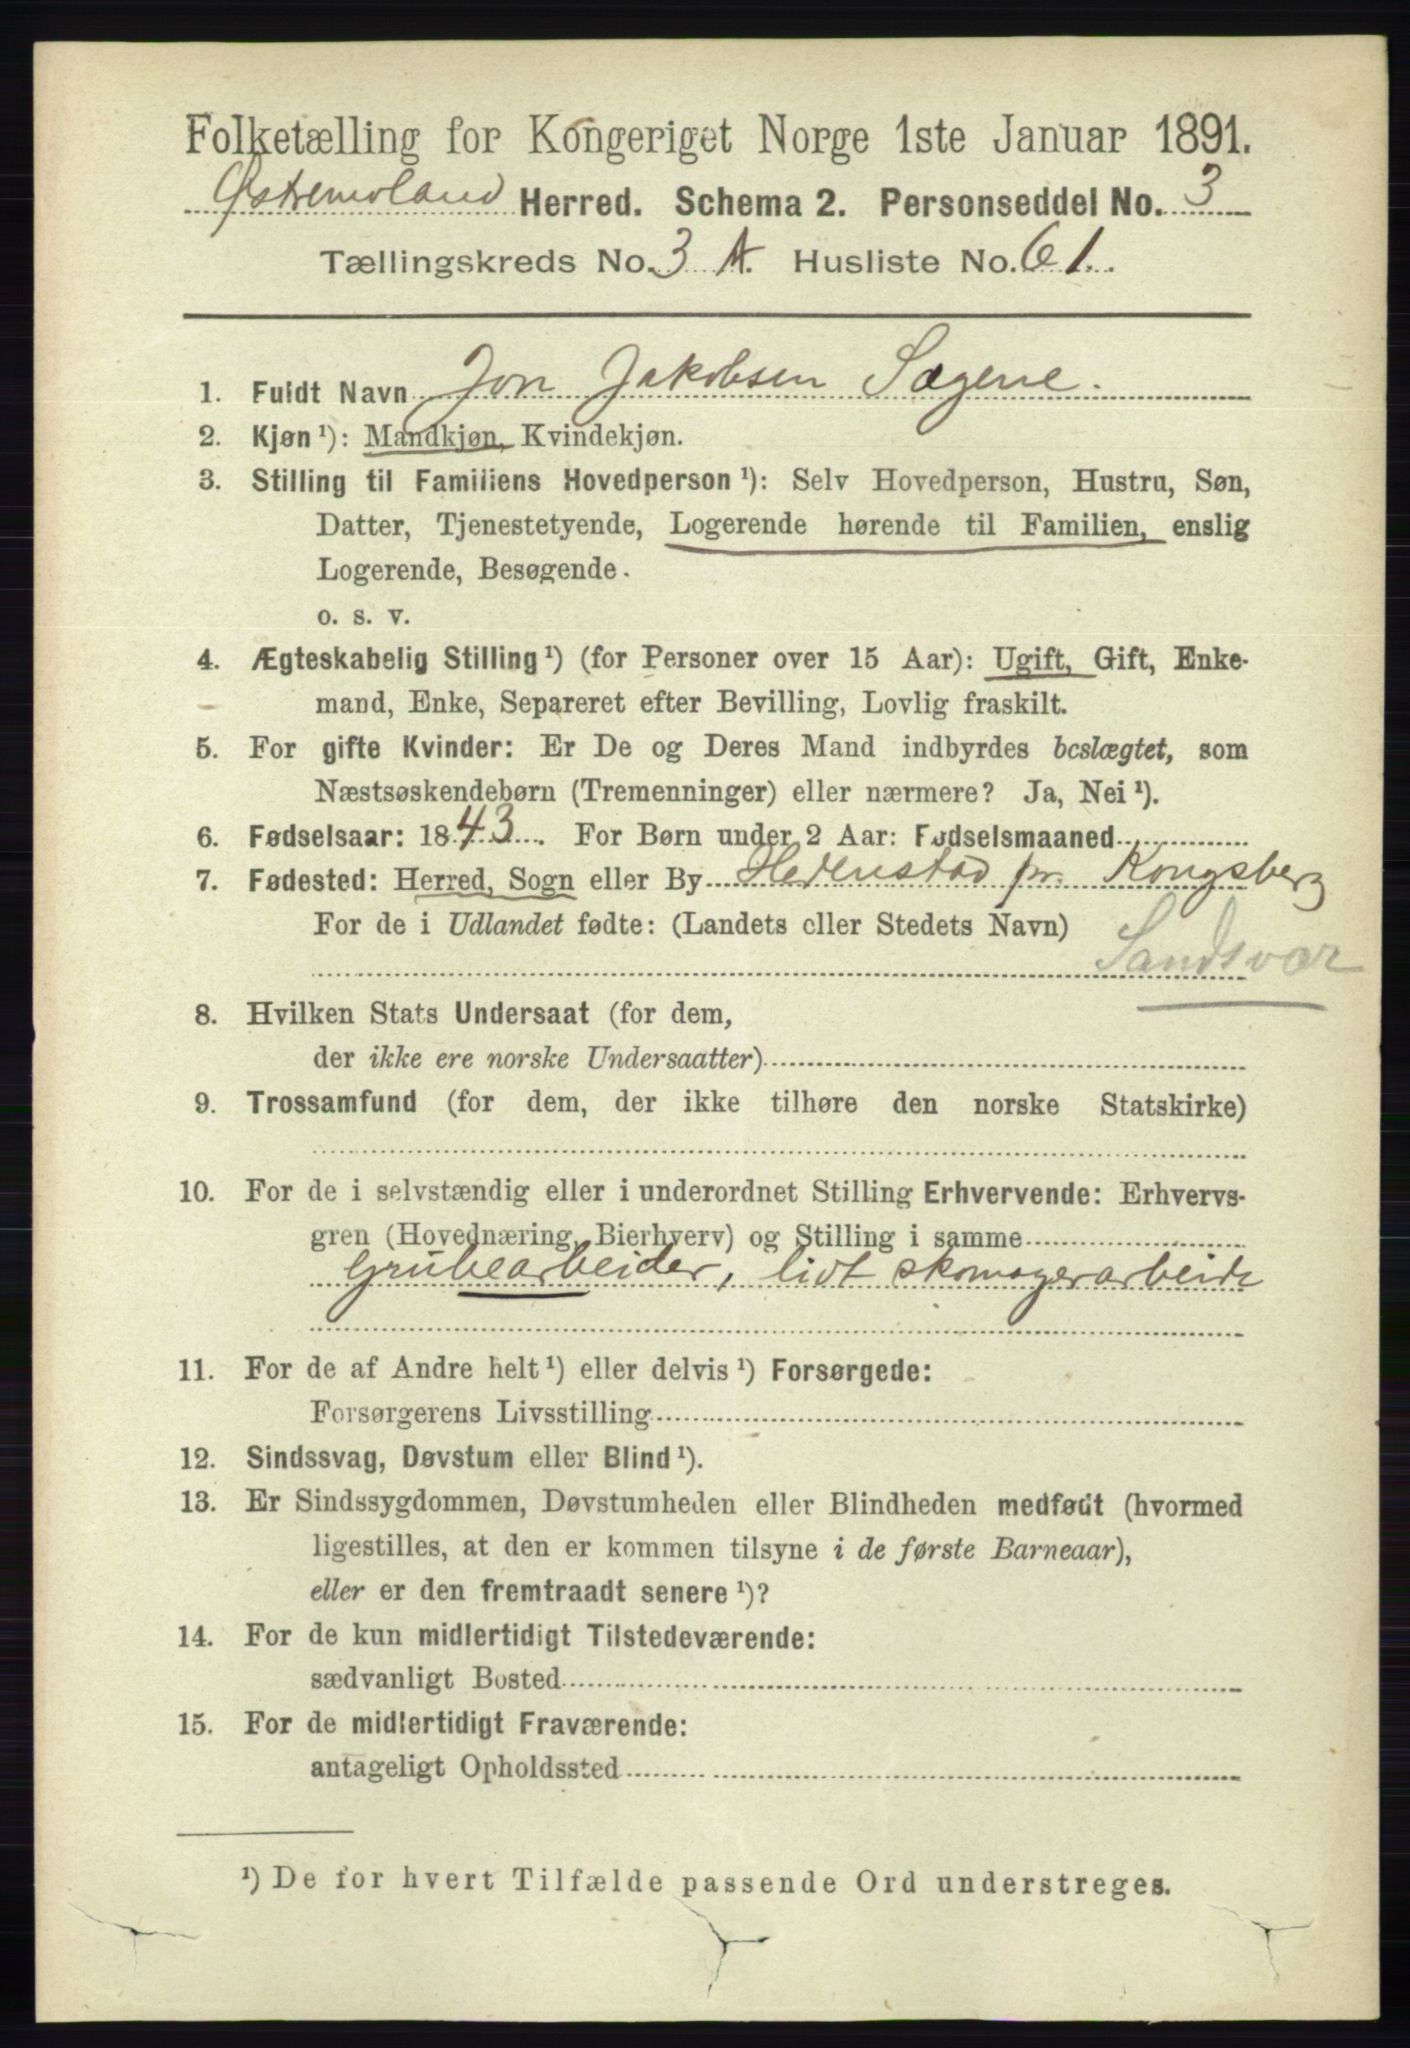 Folketælling for Kongeriget Norge 1ste Januar 1891.
Østremoland Herred. Schema 2. Personseddel No. 3
Tællingskreds No. 3 A. Husliste No. 61.
1. Fuldt Navn Jon Jakobsen Sagene.
2. Kjøn ¹): Mandkjøn, Kvindekjøn.
3. Stilling til Familiens Hovedperson ¹): Selv Hovedperson, Hustru, Søn,
Datter, Tjenestetyende, Logerende hørende til Familien, enslig
Logerende, Besøgende.
o. s. v.
4. Ægteskabelig Stilling ¹) (for Personer over 15 Aar): Ugift, Gift, Enke-
mand, Enke, Separeret efter Bevilling, Lovlig fraskilt.
5. For gifte Kvinder: Er De og Deres Mand indbyrdes beslægtet, som
Næstsøskendebørn (Tremenninger) eller nærmere? Ja, Nei ¹).
6. Fødselsaar: 1843. For Børn under 2 Aar: Fødselsmaaned
7. Fødested: Herred, Sogn eller By Hedenstad pr. Kongsberg
For de i Udlandet fødte: (Landets eller Stedets Navn)
Sandsvær
8. Hvilken Stats Undersaat (for dem,
der ikke ere norske Undersaatter)
9. Trossamfund (for dem, der ikke tilhøre den norske Statskirke)
10. For de i selvstændig eller i underordnet Stilling Erhvervende: Erhvervs-
gren (Hovednæring, Bierhverv) og Stilling i samme
Grubearbeider, lidt skomagerarbeide
11. For de af Andre helt ¹) eller delvis ¹) Forsørgede:
Forsørgerens Livsstilling
12. Sindssvag, Døvstum eller Blind ¹).
13. Er Sindssygdommen, Døvstumheden eller Blindheden medfødt (hvormed
ligestilles, at den er kommen tilsyne i de første Barneaar),
eller er den fremtraadt senere ¹)?
14. For de kun midlertidigt Tilstedeværende:
sædvanligt Bosted
15. For de midlertidigt Fraværende:
antageligt Opholdssted
¹) De for hvert Tilfælde passende Ord understreges.